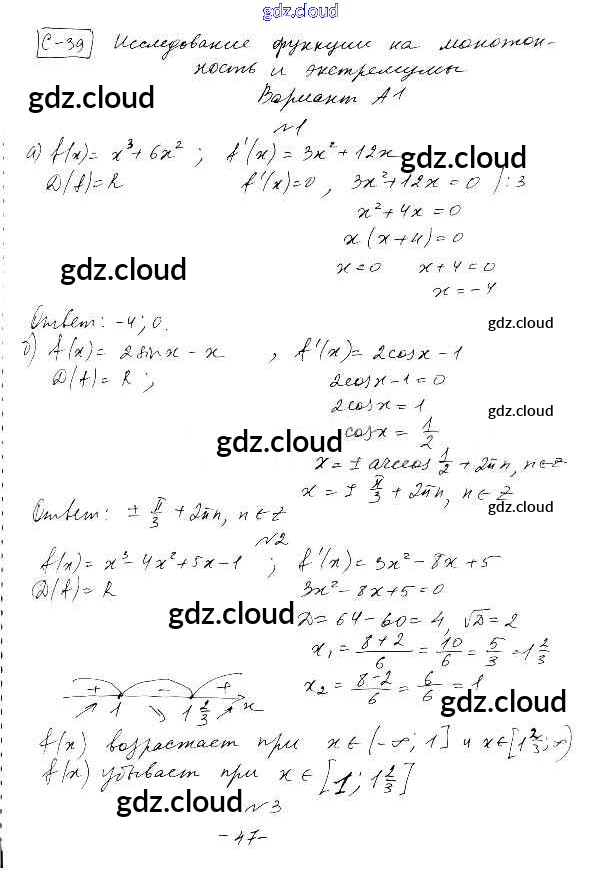 gdz.cloud
С-39 Исследование функции на монотон-
ность и экстремумы
gdz.cloud
Вариант А1
№1
а) f(x) = x³ + 6x² ; f'(x) = 3x² + 12x gdz.cloud
D(f) = R f'(x) = 0 , 3x² + 12x = 0 /:3
x² + 4x = 0
x(x+4) = 0
gdz.cloud x = 0 x + 4 = 0
x = -4
Ответ: -4; 0. gdz.cloud
б) f(x) = 2sinx - x , f'(x) = 2cosx - 1
D(f) = R ; 2cosx - 1 = 0
2cosx = 1 gdz.cloud
gdz.cloud cosx = 1/2
x = ± arccos 1/2 + 2πn, n∈Z
x = ± π/3 + 2πn, n∈Z
Ответ: ± π/3 + 2πn, n∈Z gdz.cloud
№2
f(x) = x³ - 4x² + 5x - 1 ; f'(x) = 3x² - 8x + 5
D(f) = R 3x² - 8x + 5 = 0
gdz.cloud D = 64 - 60 = 4, √D = 2
x₁ = (8+2)/6 = 10/6 = 5/3 = 1 2/3
x₂ = (8-2)/6 = 6/6 = 1
+ - +
1 1 2/3 x
gdz.cloud
f(x) возрастает при x∈(-∞; 1] и x∈[1 2/3; ∞)
f(x) убывает при x∈[1; 1 2/3]
gdz.cloud №3
-47-